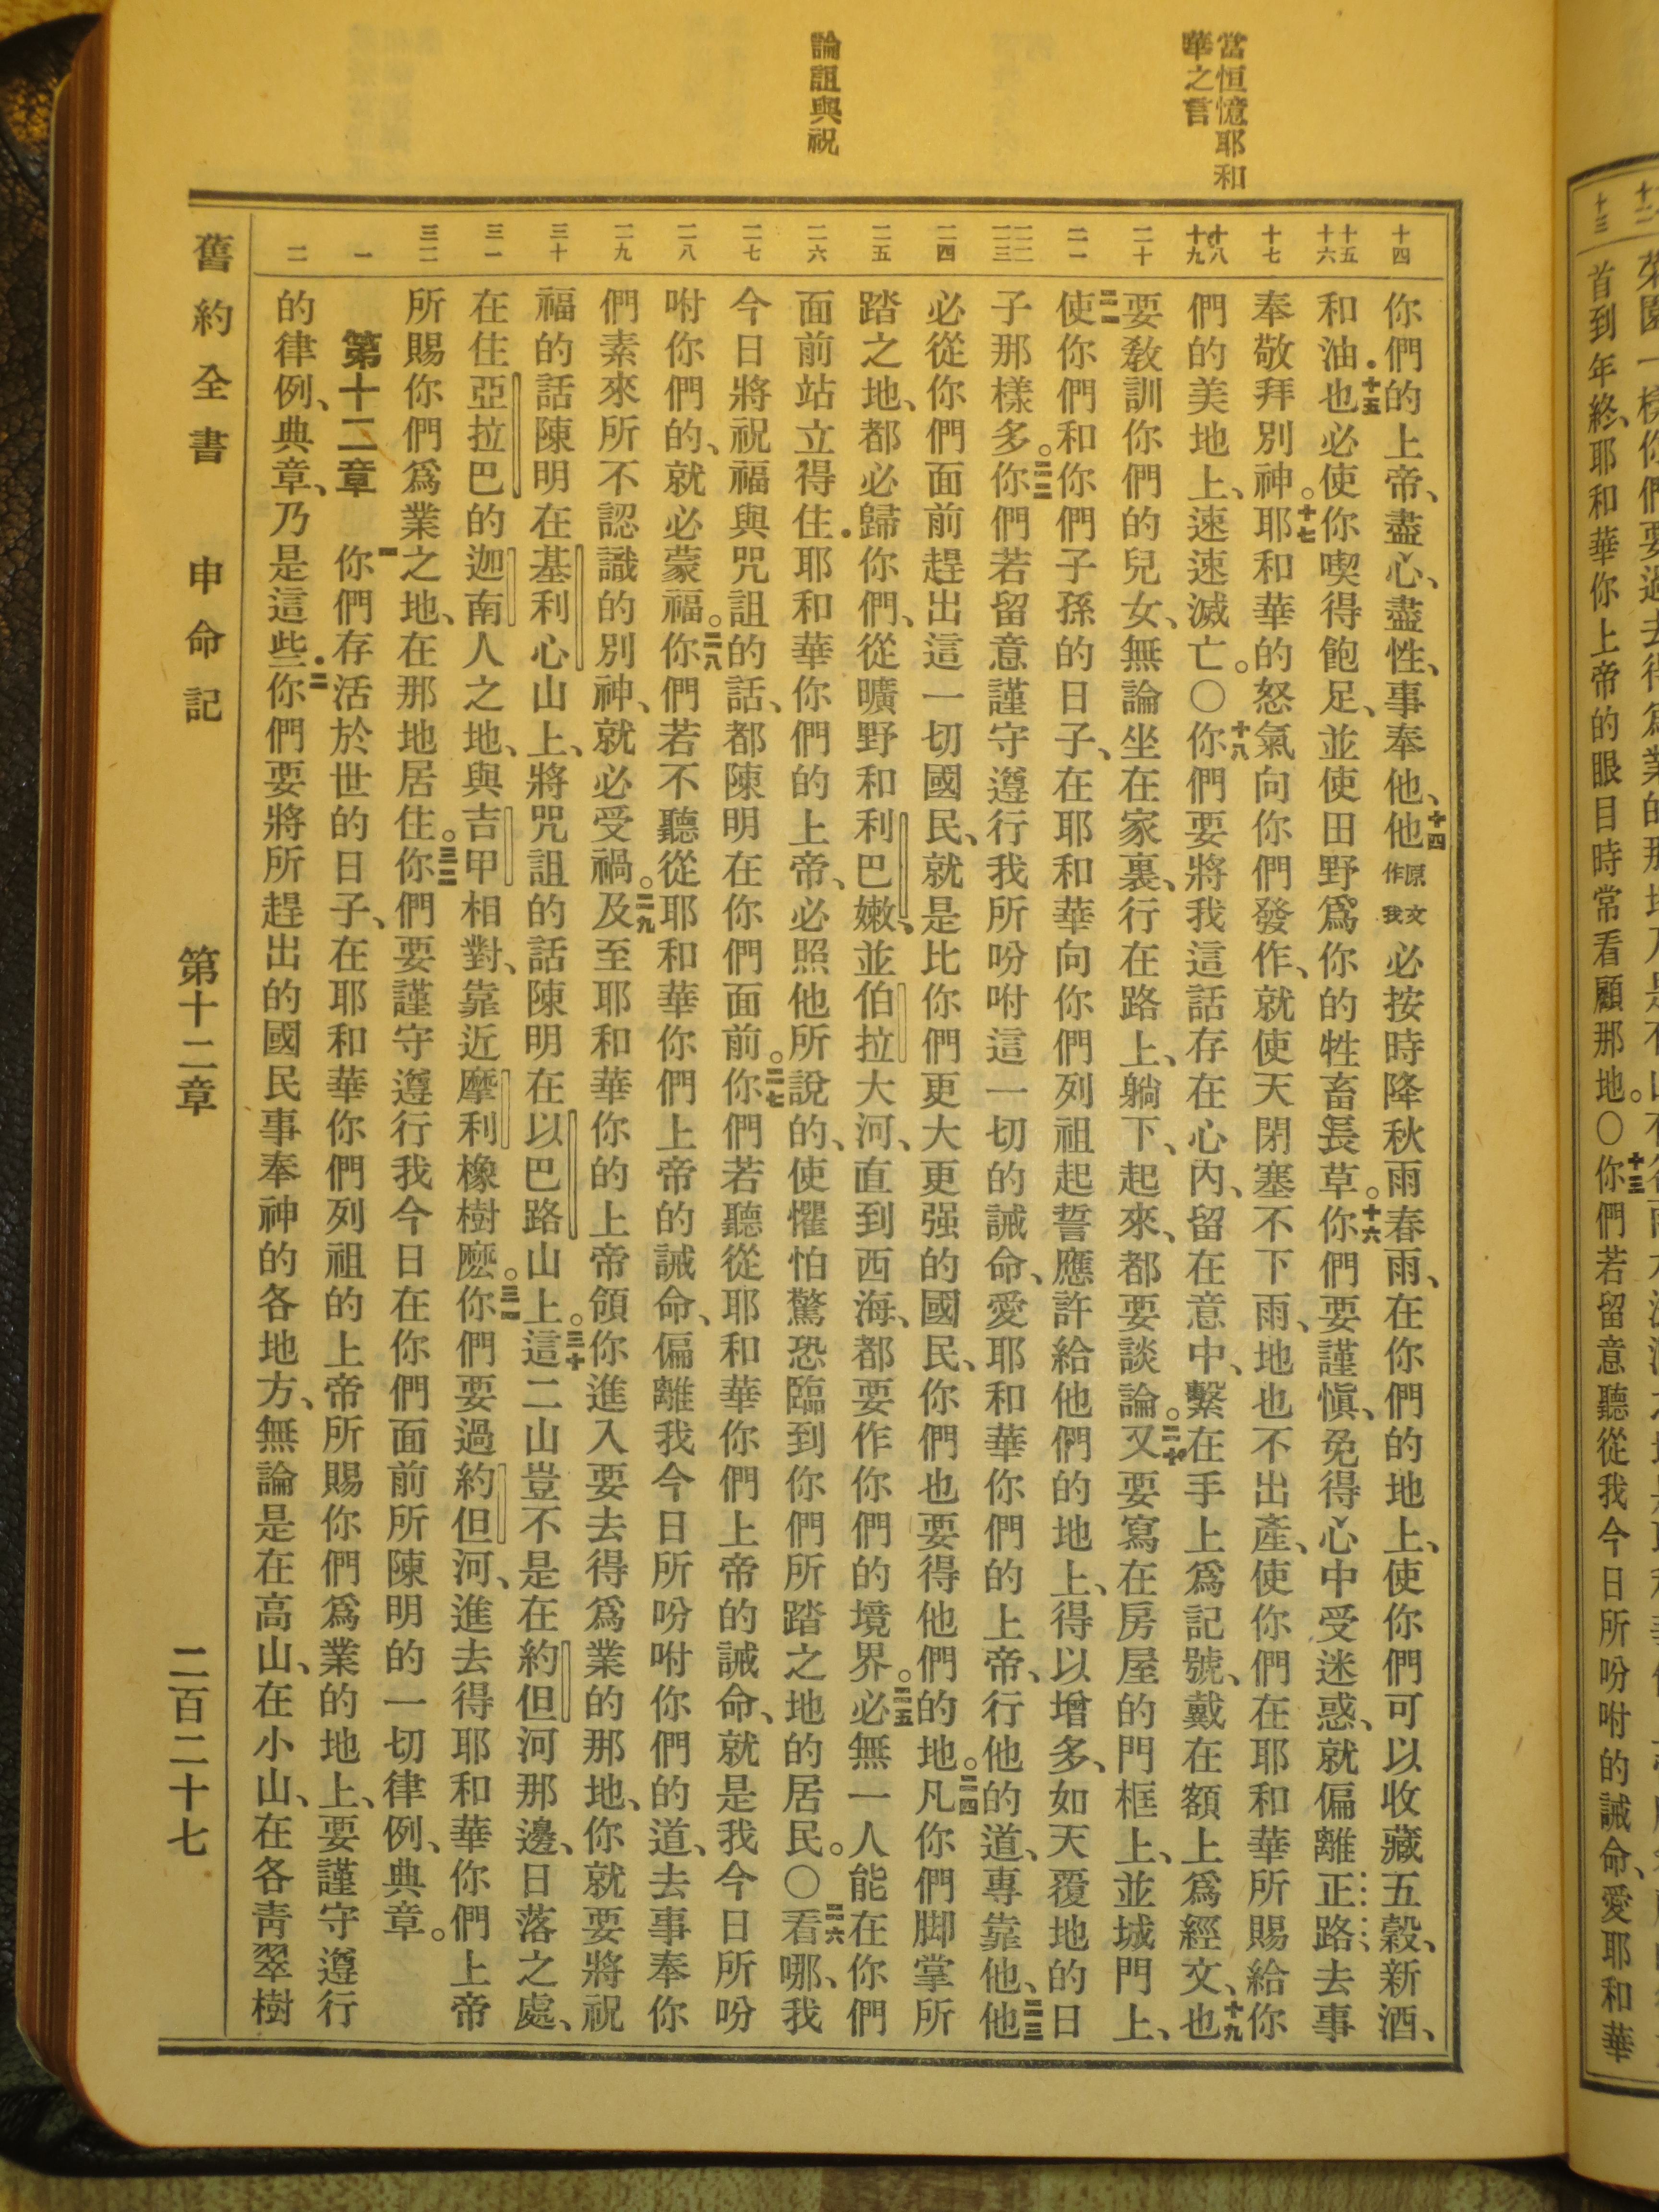 當恒憶耶和
華之言
論詛與祝
十四
十五
十六
十七
十八
十九
二十
二一
二二
二三
二四
二五
二六
二七
二八
二九
三十
三一
三二
一
二
你們的上帝、盡心、盡性、事奉他、十四他原文作我必按時降秋雨春雨、在你們的地上、使你們可以收藏五穀、新酒、
和油．十五也必使你喫得飽足、並使田野爲你的牲畜長草。十六你們要謹慎、免得心中受迷惑、就偏離正路去事
奉敬拜別神。十七耶和華的怒氣向你們發作、就使天閉塞不下雨、地也不出產、使你們在耶和華所賜給你
們的美地上、速速滅亡。〇十八你們要將我這話存在心內、留在意中、繫在手上爲記號、戴在額上爲經文、十九也
要敎訓你們的兒女、無論坐在家裏、行在路上、躺下、起來、都要談論。二十又要寫在房屋的門框上、並城門上、
二一使你們和你們子孫的日子、在耶和華向你們列祖起誓應許給他們的地上、得以增多、如天覆地的日
子那樣多。二二你們若留意謹守遵行我所吩咐這一切的誡命、愛耶和華你們的上帝、行他的道、專靠他、二三他
必從你們面前趕出這一切國民、就是比你們更大更强的國民、你們也要得他們的地。二四凡你們脚掌所
踏之地、都必歸你們、從曠野和利巴嫩、並伯拉大河、直到西海、都要作你們的境界。二五必無一人能在你們
面前站立得住．耶和華你們的上帝、必照他所說的、使懼怕驚恐臨到你們所踏之地的居民。〇二六看哪、我
今日將祝福與咒詛的話、都陳明在你們面前。二七你們若聽從耶和華你們上帝的誡命、就是我今日所吩
咐你們的、就必蒙福。二八你們若不聽從耶和華你們上帝的誡命、偏離我今日所吩咐你們的道、去事奉你
們素來所不認識的別神、就必受禍。二九及至耶和華你的上帝領你進入要去得爲業的那地、你就要將祝
福的話陳明在基利心山上、將咒詛的話陳明在以巴路山上。三十這二山豈不是在約但河那邊、日落之處、
在住亞拉巴的迦南人之地、與吉甲相對、靠近摩利橡樹麽。三一你們要過約但河、進去得耶和華你們上帝
所賜你們爲業之地、在那地居住。三二你們要謹守遵行我今日在你們面前所陳明的一切律例、典章。
第十二章　一你們存活於世的日子、在耶和華你們列祖的上帝所賜你們爲業的地上、要謹守遵行
的律例、典章、乃是這些．二你們要將所趕出的國民事奉神的各地方、無論是在高山、在小山、在各靑翠樹
舊約全書　申命記　第十二章　二百二十七
十三
首到年終、耶和華你上帝的眼目時常看顧那地。〇十三你們若留意聽從我今日所吩咐的誡命、愛耶和華